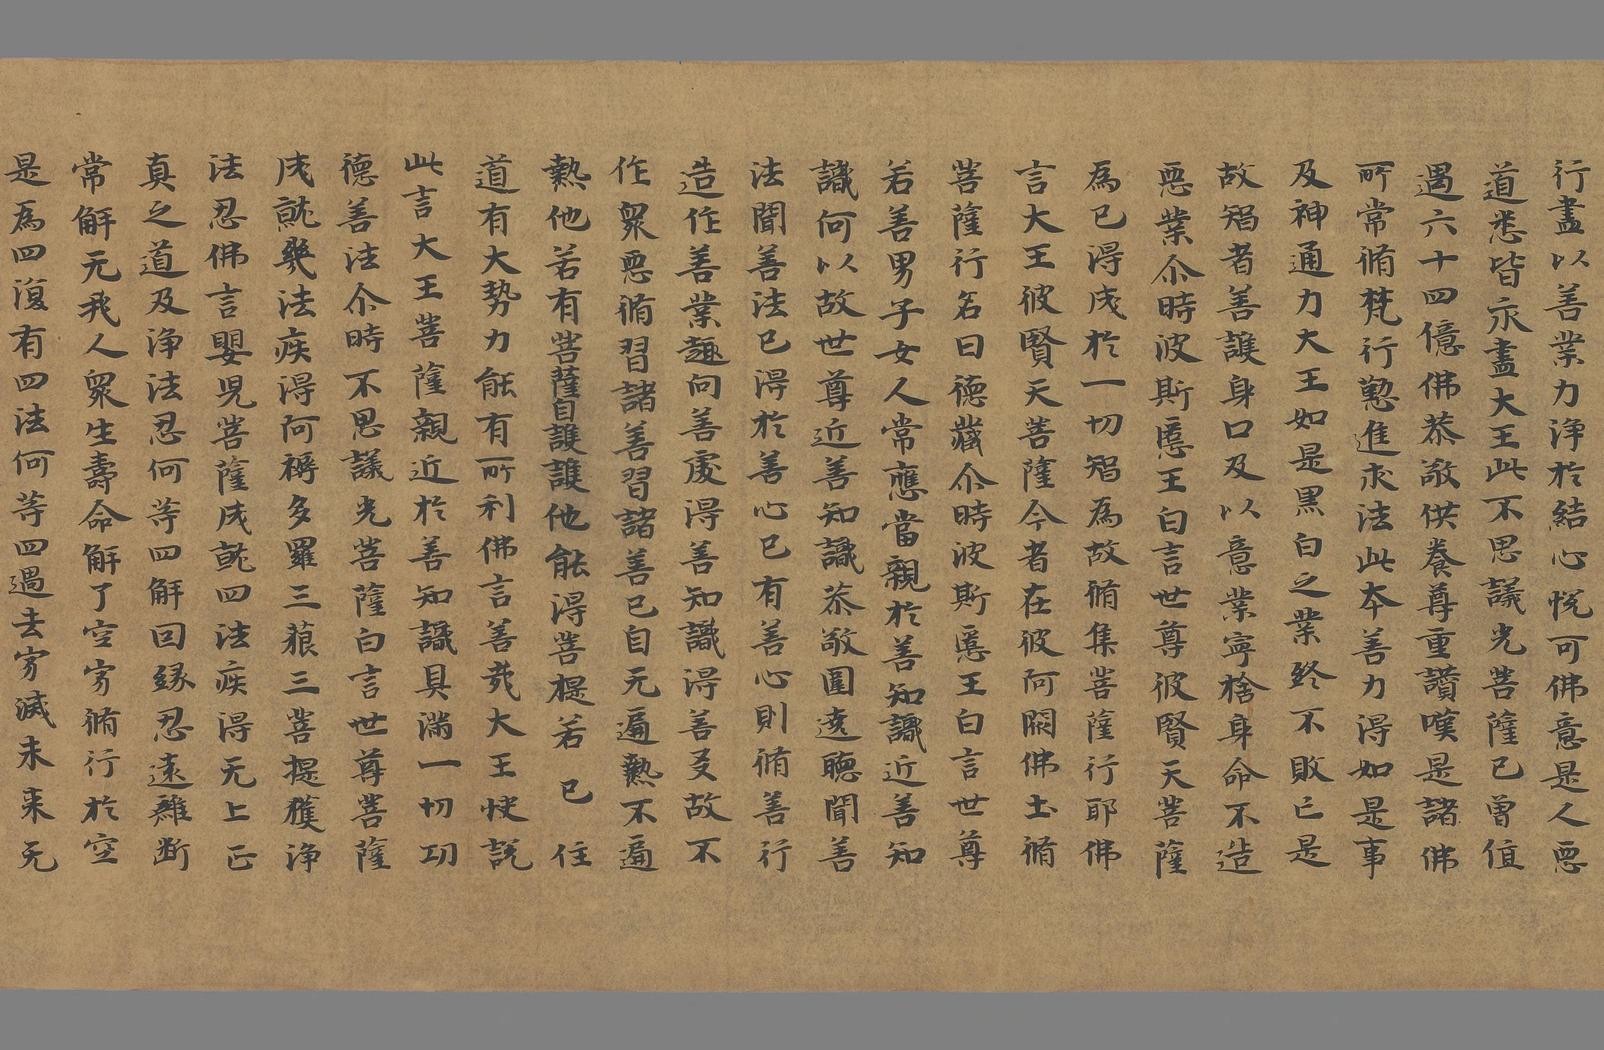 行盡以善業力淨於結心悅可佛意是人惡
道悉皆永盡大王此不思議光菩薩已曾值
遇六十四億佛恭敬供養尊重讚嘆是諸佛
所常脩梵行懃進求法此本善力得如是事
及神通力大王如是黑白之業終不敗亡是
故智者善護身口及以意業寧捨身命不造
惡業尒時波斯匿王白言世尊彼賢天菩薩
為已得成於一切智為故脩集菩薩行耶佛
言大王彼賢天菩薩今者在彼阿閦佛土脩
菩薩行名曰德藏尒時波斯匿王白言世尊
若善男子女人常應當親於善知識近善知
識何以故世尊近善知識恭敬圍遶聽聞善
法聞善法已得於善心已有善心則脩善行
造作善業趣向善處得善知識得善友故不
作衆惡脩習諸善習諸善已自无遍熱不遍
熱他若有菩薩自護護他能得菩提若已住
道有大勢力能有所利佛言善哉大王快說
此言大王菩薩親近於善知識具滿一切功
德善法尒時不思議光菩薩白言世尊菩薩
成就幾法疾得阿耨多羅三藐三菩提獲淨
法忍佛言嬰児菩薩成就四法疾得无上正
真之道及淨法忍何等四解回緣忍遠離断
常解无我人衆生壽命解了空寂脩行於空
是為四復有四法何等四過去寂滅未来无